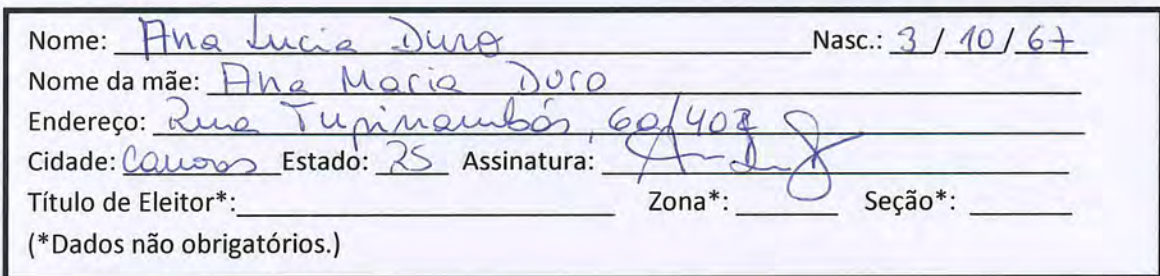 Nome: Ana Lucia Duro Nasc.: 3 / 10 / 67
Nome da mãe: Ana Maria Duro
Endereço: Rua Tupinambás, 60/407
Cidade: Canoas Estado: RS Assinatura:
Título de Eleitor*: Zona*: Seção*:
(*Dados não obrigatórios.)